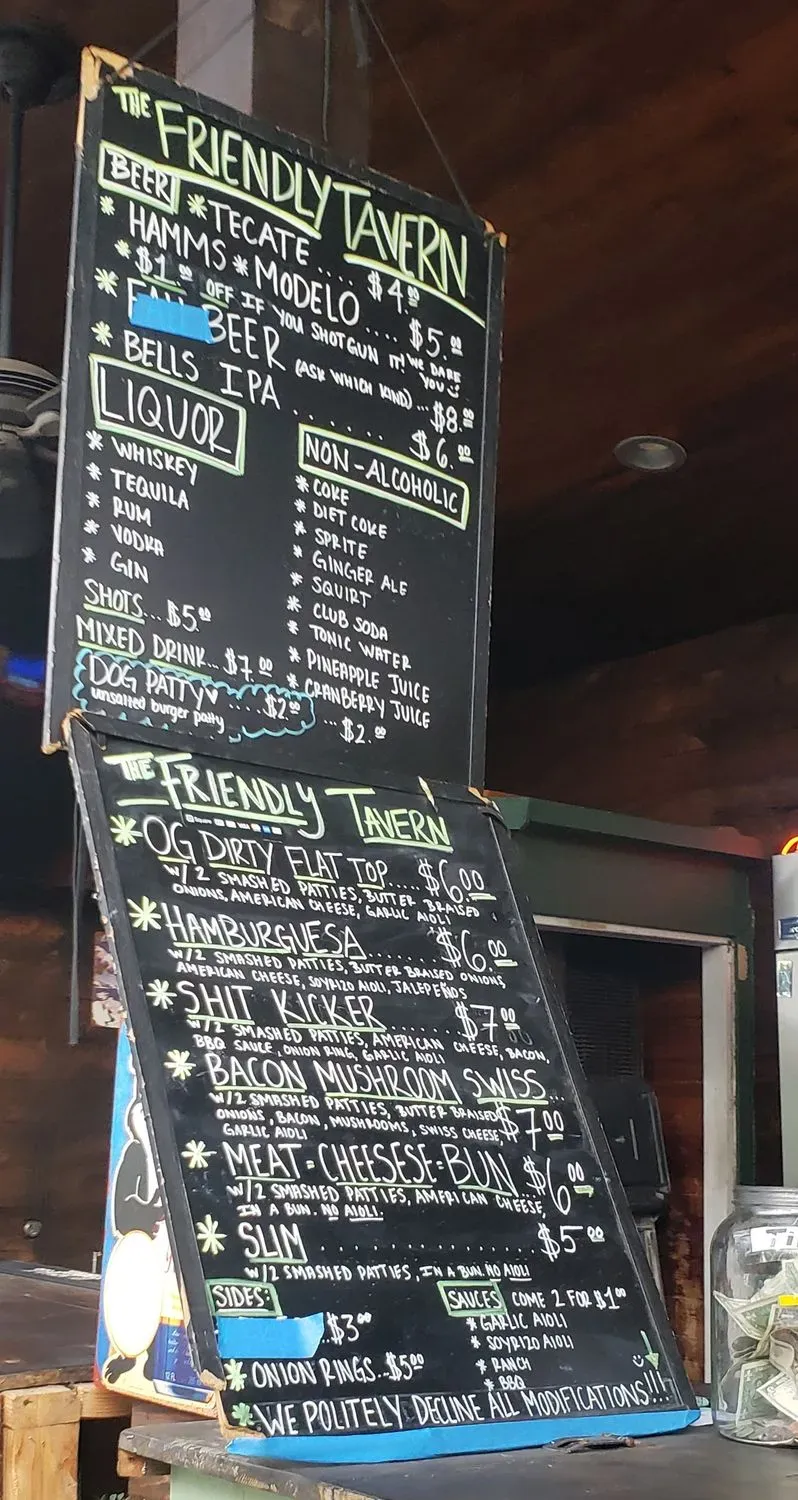 THE FRIENDLY TAVERN
BEER
* TECATE .... $4.00
* HAMMS * MODELO .... $5.00
* $1.00 OFF IF YOU SHOTGUN IT! WE DARE YOU
* BEER (ASK WHICH KIND) ... $8.00
* BELLS IPA ...... $6.00
LIQUOR
* WHISKEY
* TEQUILA
* RUM
* VODKA
* GIN
SHOTS... $5.00
MIXED DRINK... $7.00
DOG PATTY ....$2.00
unsalted burger patty
NON-ALCOHOLIC
* COKE
* DIET COKE
* SPRITE
* GINGER ALE
* SQUIRT
* CLUB SODA
* TONIC WATER
* PINEAPPLE JUICE
* CRANBERRY JUICE
... $2.00
THE FRIENDLY TAVERN
* OG DIRTY FLAT TOP..... $6.00
W/2 SMASHED PATTIES, BUTTER BRAISED
ONIONS, AMERICAN CHEESE, GARLIC AIOLI
* HAMBURGUESA........ $6.00
W/2 SMASHED PATTIES, BUTTER BRAISED ONIONS,
AMERICAN CHEESE, SOYRIZO AIOLI, JALEPEÑOS
* SHIT KICKER $7.00
W/2 SMASHED PATTIES, AMERICAN CHEESE, BACON,
BBQ SAUCE, ONION RING, GARLIC AIOLI
* BACON MUSHROOM SWISS...
W/2 SMASHED PATTIES, BUTTER BRAISED $7.00
ONIONS, BACON, MUSHROOMS, SWISS CHEESE,
GARLIC AIOLI
* MEAT=CHEESESE=BUN $6.00
W/2 SMASHED PATTIES, AMERICAN CHEESE,
IN A BUN. NO AIOLI.
* SLIM .................. $5.00
W/2 SMASHED PATTIES, IN A BUN. NO AIOLI
SIDES:
. $3.00
* ONION RINGS...$5.00
SAUCES COME 2 FOR $1.00
* GARLIC AIOLI
* SOYRIZO AIOLI
* RANCH
* BBQ
* WE POLITELY DECLINE ALL MODIFICATIONS!!!